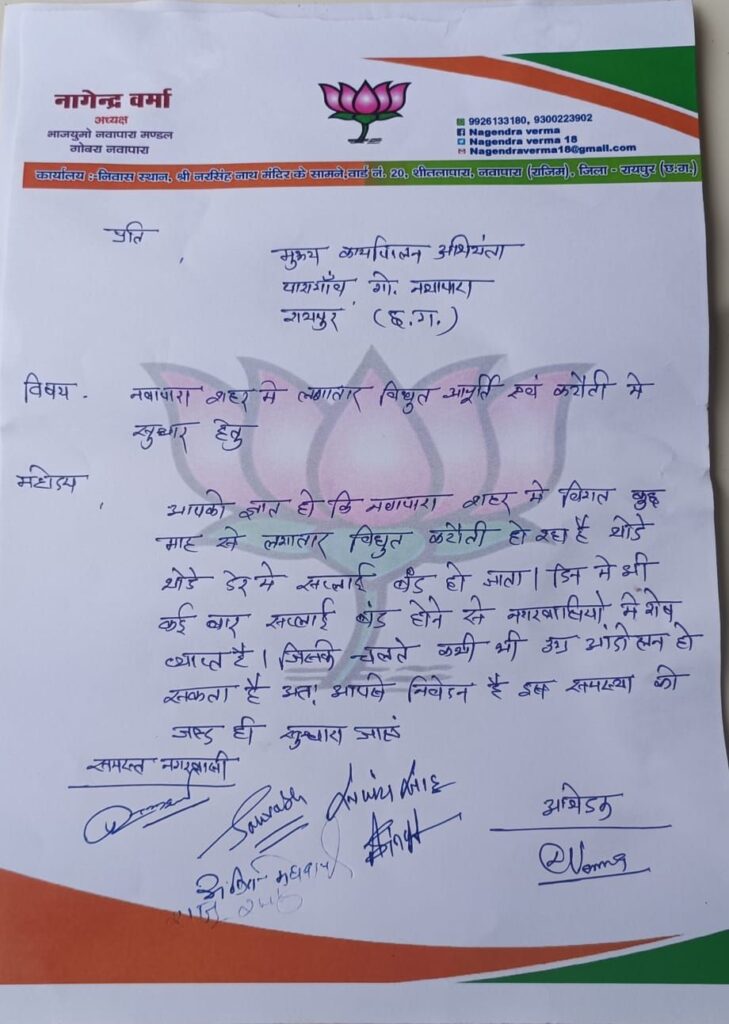 नागेन्द्र वर्मा
अध्यक्ष
भाजयुमो नवापारा मण्डल
गोबरा नवापारा
9926133180, 9300223902
Nagendra verma
Nagendra verma 18
Nagendraverma18@gmail.com
कार्यालय :-निवास स्थान, श्री नरसिंह नाथ मंदिर के सामने, वार्ड नं. 20, शीतलापारा, नवापारा (राजिम), जिला - रायपुर (छ.ग.)
प्रति ,
मुख्य कार्यपालन अभियंता
पारागाँव गो. नवापारा
रायपुर (छ.ग.)
विषय - नवापारा शहर मे लगातार विधुत आपूर्ति एवं कटौती मे
सुधार हेतु
महोदय ,
आपको ज्ञात हो कि नवापारा शहर मे विगत कुछ
माह से लगातार विधुत कटौती हो रहा है थोडे
थोडे देर मे सप्लाई बंद हो जाता। दिन मे भी
कई बार सप्लाई बंद होने से नगरवासियो मे रोष
व्याप्त है। जिसके चलते कभी भी उग्र आंदोलन हो
सकता है अतः आपसे निवेदन है इस समस्या को
जल्द ही सुधारा जाएं
समस्त नगरवासी
Saurabh
आवेदक
Verma